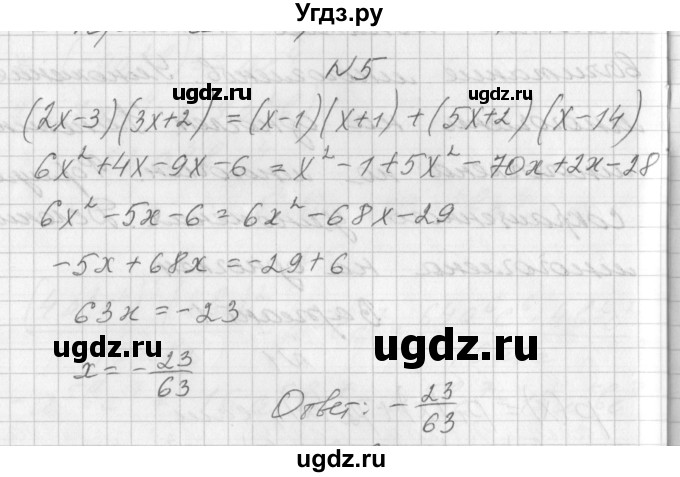 Угдз.ру
№5
(2x-3)(3x+2) = (x-1)(x+1) + (5x+2)(x-14)
6x²+4x-9x-6 = x²-1+5x²-70x+2x-28
6x²-5x-6 = 6x²-68x-29
-5x+68x = -29+6
63x = -23
ugdz.ru
ugdz.ru
x = -23/63
Ответ: -23/63
ugdz.ru
ugdz.ru